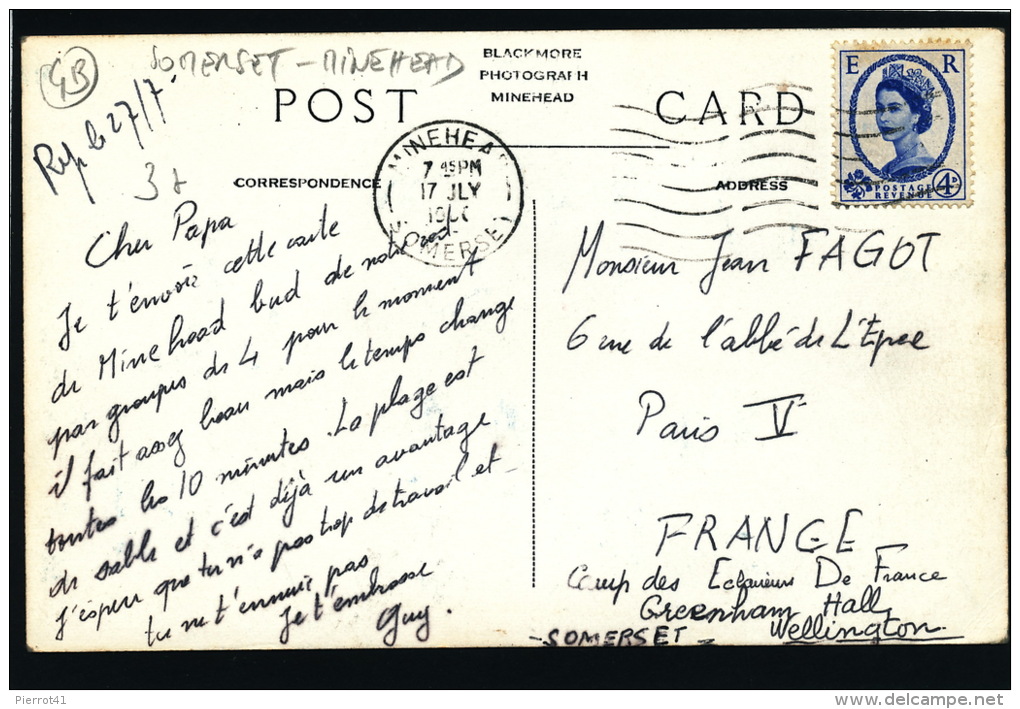 GB
SOMERSET - MINEHEAD
BLACKMORE
PHOTOGRAPH
MINEHEAD
POST CARD
Rep le 27/7
CORRESPONDENCE
ADDRESS
MINEHEAD
7 45 PM
17 JLY
SOMERSET
E R
POSTAGE
REVENUE
4D
Cher Papa
Je t'envoie cette carte
de Minehead but de notre
par groupes de 4 pour le moment
il fait assez beau mais le temps change
toutes les 10 minutes. La plage est
de sable et c'est déjà un avantage
J'espère que tu n'a pas trop de travail et
tu ne t'ennuie pas
Je t'embrasse
Guy.
Monsieur Jean FAGOT
6 rue de l'abbé de L'Epee
Paris V
FRANCE
Camp des Eclaireurs De France
Greenham Hall
Wellington
- SOMERSET -
Pierrot41
www.delcampe.net